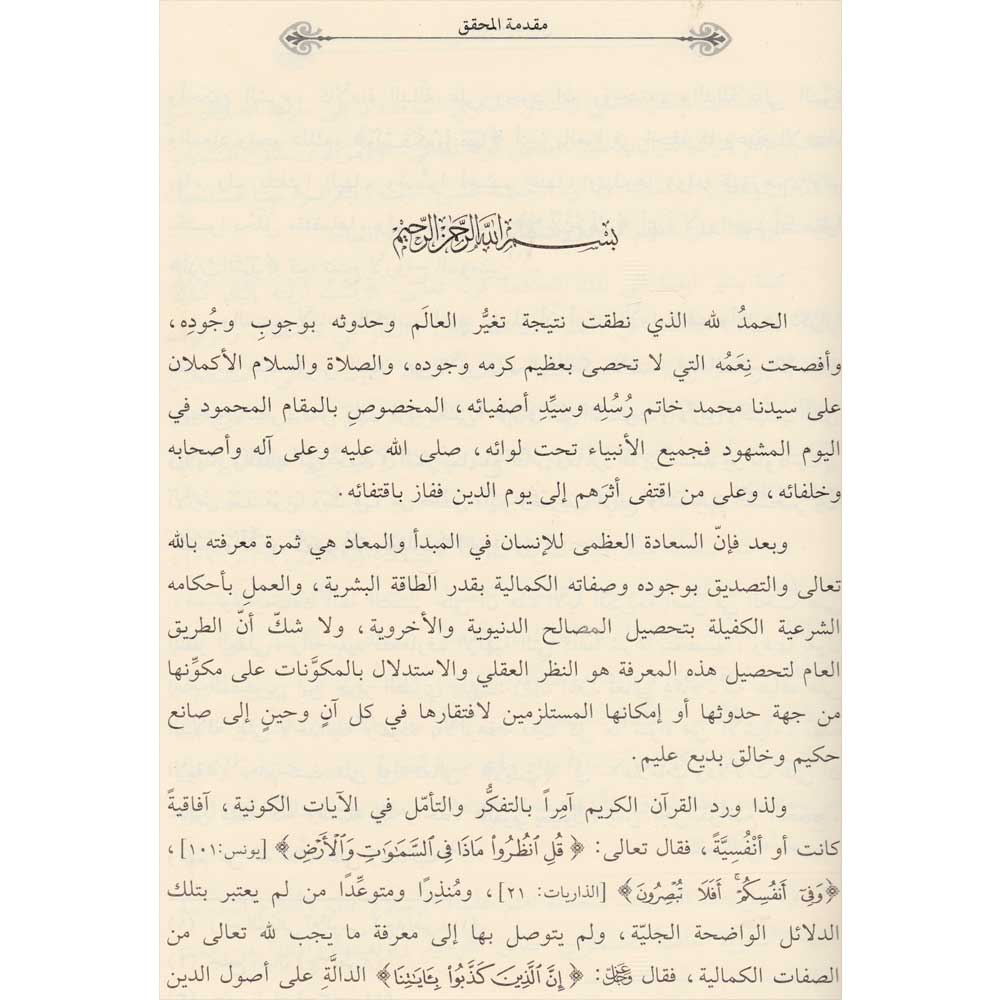 مقدمة المحقق
بسم الله الرحمن الرحيم
الحمدُ لله الذي نطقت نتيجة تغيُّر العالَم وحدوثه بوجوبِ وجُودِه،
وأفصحت نِعَمُه التي لا تحصى بعظيم كرمه وجوده، والصلاة والسلام الأكملان
على سيدنا محمد خاتم رُسُلِه وسيِّدِ أصفيائه، المخصوصِ بالمقام المحمود في
اليوم المشهود فجميع الأنبياء تحت لوائه، صلى الله عليه وعلى آله وأصحابه
وخلفائه، وعلى من اقتفى أثرَهم إلى يوم الدين ففاز باقتفائه.
وبعد فإنّ السعادة العظمى للإنسان في المبدأ والمعاد هي ثمرة معرفته بالله
تعالى والتصديق بوجوده وصفاته الكمالية بقدر الطاقة البشرية، والعملِ بأحكامه
الشرعية الكفيلة بتحصيل المصالح الدنيوية والأخروية، ولا شكّ أنّ الطريق
العام لتحصيل هذه المعرفة هو النظر العقلي والاستدلال بالمكوَّنات على مكوِّنها
من جهة حدوثها أو إمكانها المستلزمين لافتقارها في كل آنٍ وحينٍ إلى صانع
حكيم وخالق بديع عليم.
ولذا ورد القرآن الكريم آمِراً بالتفكُّر والتأمّل في الآيات الكونية، آفاقيةً
كانت أو أنْفُسِيَّةً، فقال تعالى: ﴿قُلِ ٱنظُرُواْ مَاذَا فِي ٱلسَّمَٰوَٰتِ وَٱلۡأَرۡضِ﴾ [يونس: ١٠١]،
﴿وَفِيٓ أَنفُسِكُمۡۚ أَفَلَا تُبۡصِرُونَ﴾ [الذاريات: ٢١]، ومُنذِرًا ومتوعِّدًا من لم يعتبر بتلك
الدلائل الواضحة الجليّة، ولم يتوصل بها إلى معرفة ما يجب لله تعالى من
الصفات الكمالية، فقال عز وجل: ﴿إِنَّ ٱلَّذِينَ كَذَّبُواْ بِـَٔايَٰتِنَا﴾ الدالَّةِ على أصول الدين